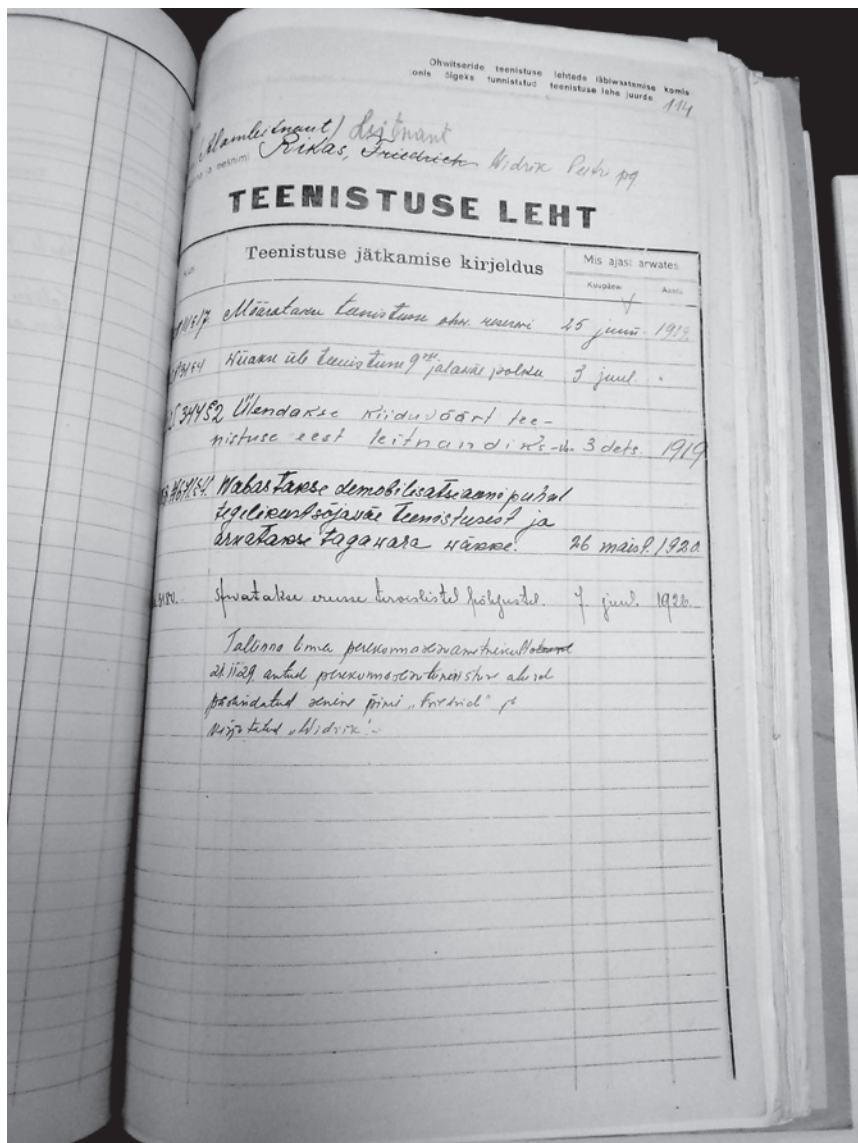 Ohwitseride teenistuse lehtede läbiwaatamise komis
jonis õigeks tunnistatud teenistuse lehe juurde
114
(Alamleitnant) Leitnant
ja eesnimi Rikas, Friedrich Widrik Peetri pg
TEENISTUSE LEHT
Teenistuse jätkamise kirjeldus
Mis ajast arwates
Kuupäew Aasta
Määratakse teenistusse ohw. reserwi 25 juuni 1919
Wiiakse üle teenistusse 9 jalawäe polku 3 juul. "
344 §2 Ülendakse kiiduväärt tee-
nistuse eest leitnandiks 3 dets. 1919
Wabastakse demobilisatsiooni puhul
tegelikust sõjawäe teenistusest ja
arwatakse tagawara wäkke. 26 maist. 1920.
arwatakse erusse terwislistel põhjustel. 7. juul. 1926.
Tallinna linna perekonnaseisuameti
21.II 29. antud perekonnaseisu tunnistuse alusel
senine nimi "Friedrich" ja
kirjutatud "Widrik".-